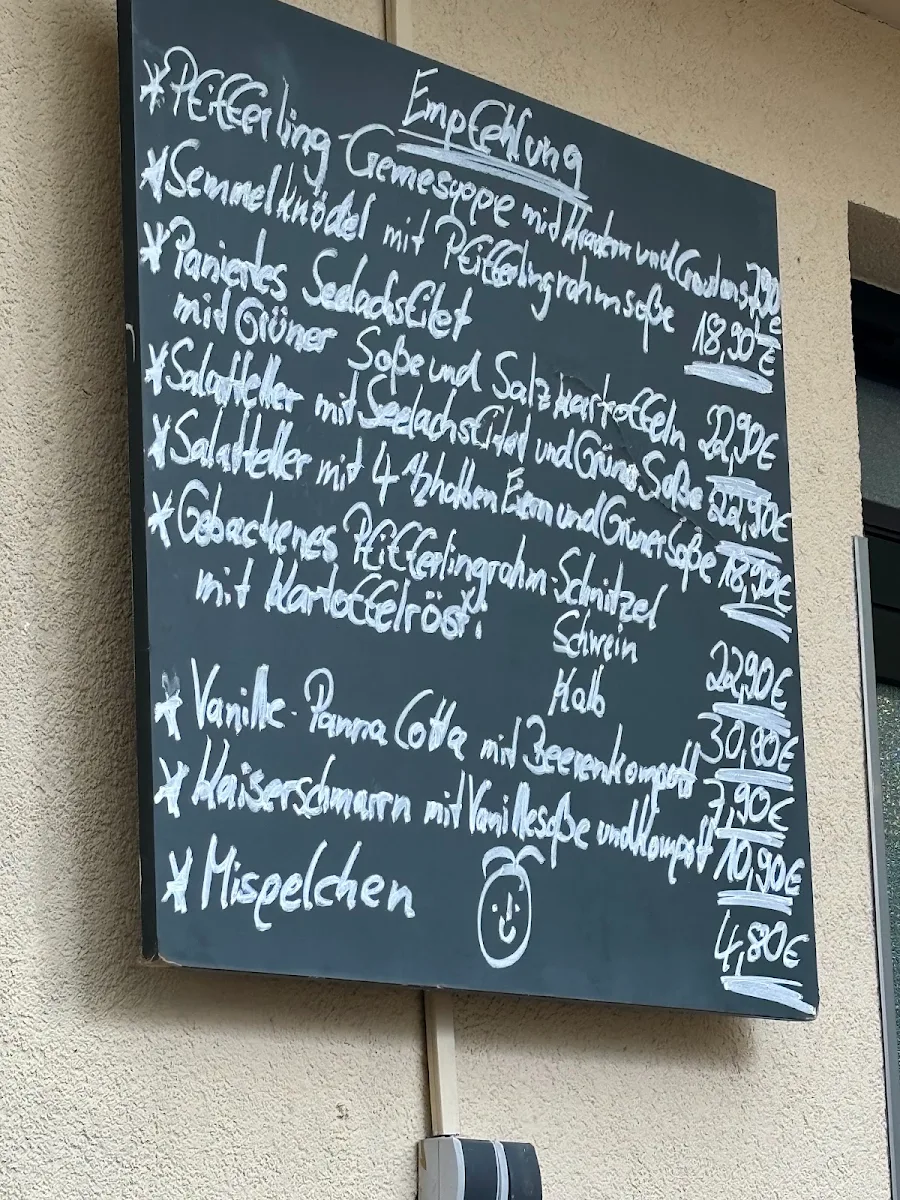 Empfehlung
* Pfifferling-Gemesuppe mit Kräutern und Croutons 7,90 €
* Semmelknödel mit Pfifferlingrahmsoße 18,90 €
* Paniertes Seelachsfilet
mit Grüner Soße und Salzkartoffeln 22,90 €
* Salatteller mit Seelachsfilet und Grüner Soße 22,90 €
* Salatteller mit 4 halben Eiern und Grüner Soße 18,90 €
* Gebackenes Pfifferlingrahm-Schnitzel
mit Kartoffelrösti
Schwein 22,90 €
Kalb 30,80 €
* Vanille-Panna Cotta mit Beerenkompott 7,90 €
* Kaiserschmarrn mit Vanillesoße und Kompott 10,90 €
* Mispelchen 4,80 €